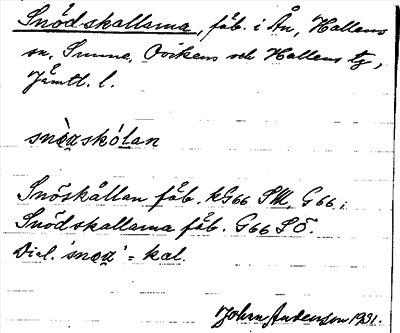 Snödskallarna, fäb. i Ån, Hallens
sn, Sunne, Ovikens och Hallens tg,
Jämtl. l.
snö̀ɑskólan
Snöskållan fäb. kG66 SM, G66;
Snödskallarna fäb. G66 SÖ.
Dial. 'snöɑ' = kal.
Johan Anderson 1931.